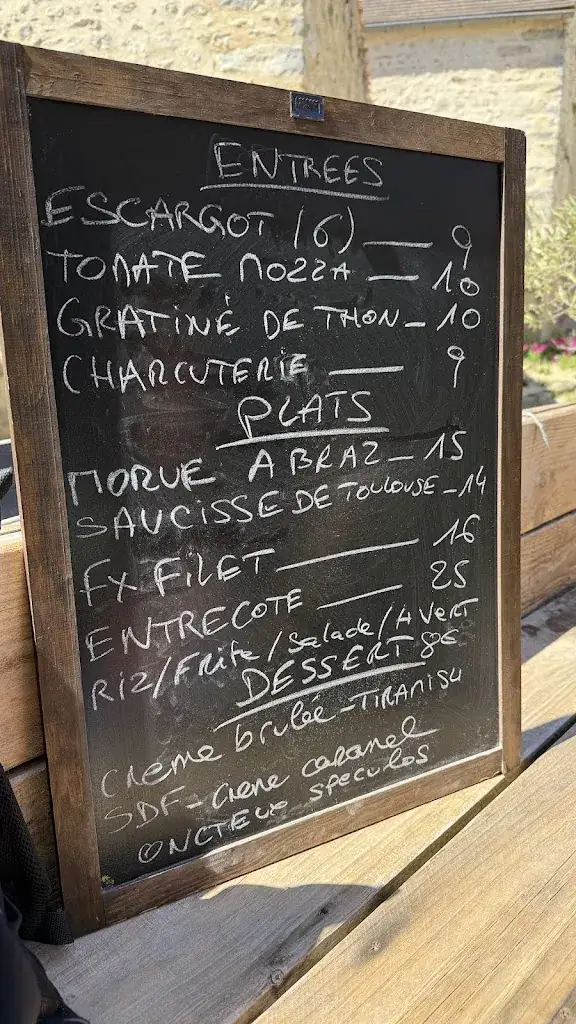 ENTREES
ESCARGOT (6) — 9
TOMATE MOZZA — 10
GRATINÉ DE THON — 10
CHARCUTERIE — 9
PLATS
MORUE A BRAZ — 15
SAUCISSE DE TOULOUSE — 14
FX FILET — 16
ENTRECOTE — 25
RIZ/FRITE/Salade/H VERT
DESSERT 8€
Crème brulée - TIRAMISU
SDF - Creme caramel
ONCTEUX SPECULOS